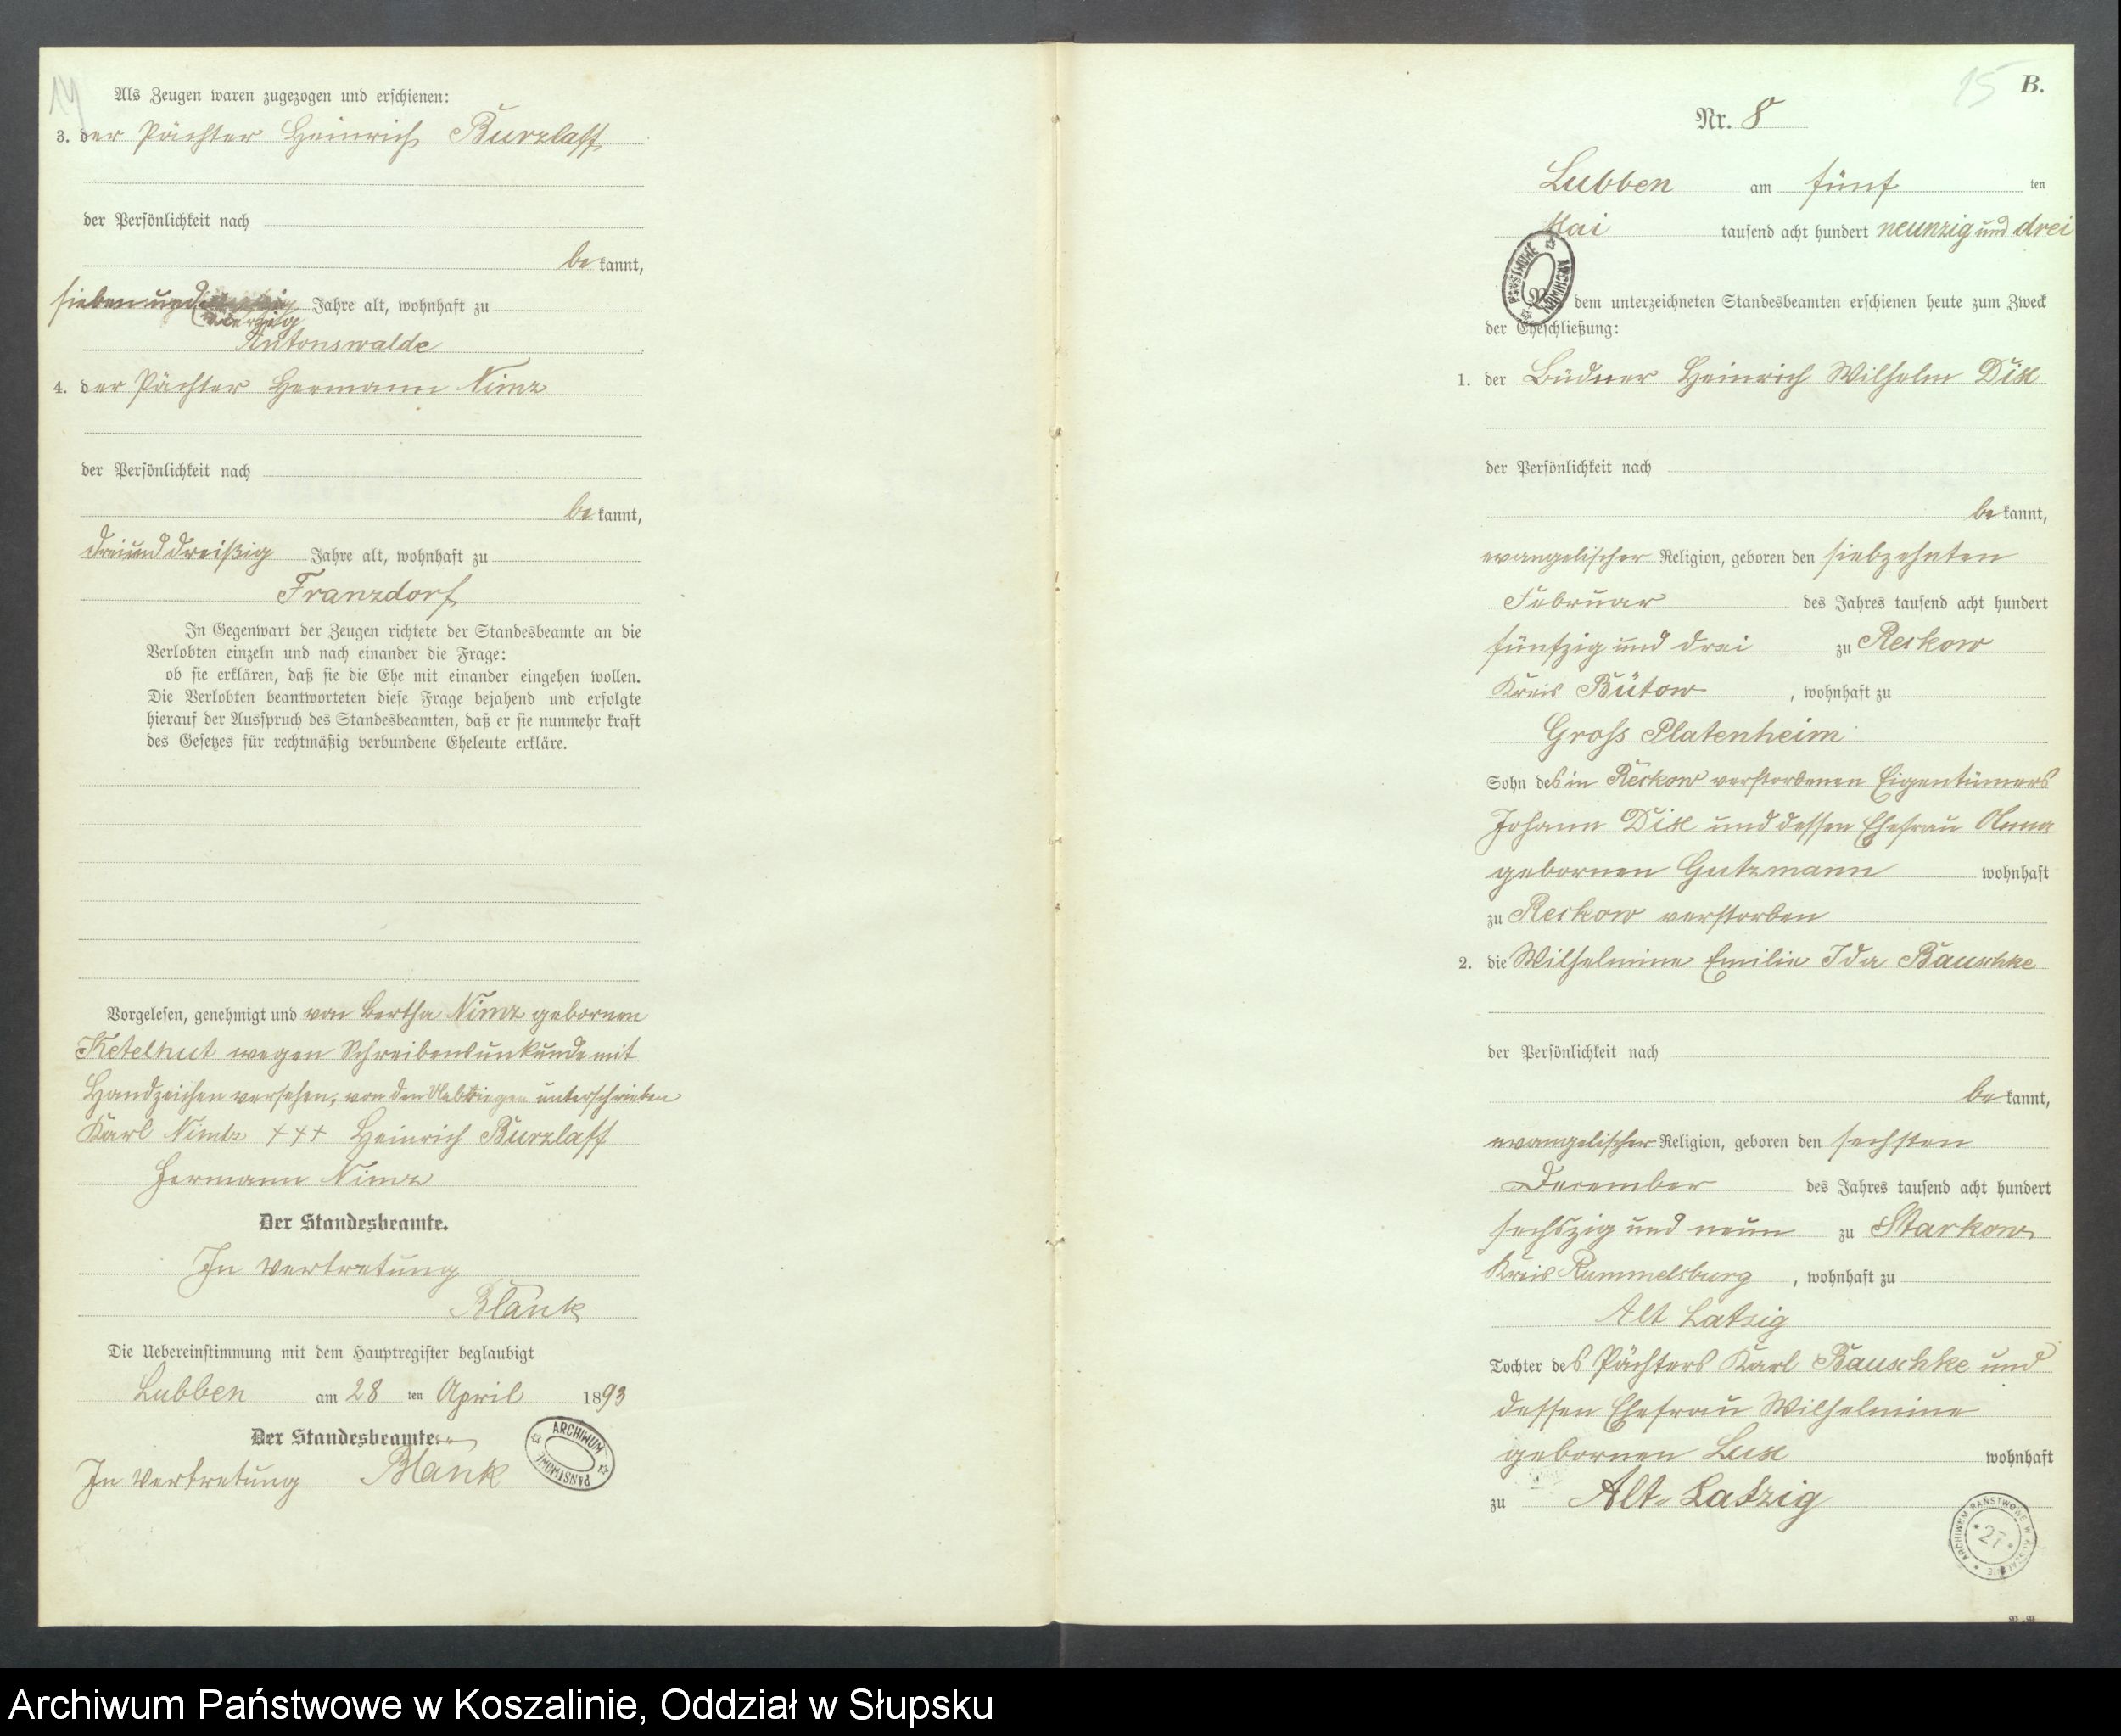 14
Als Zeugen waren zugezogen und erschienen:
3. der Pächter Heinrich Burzlaff
der Persönlichkeit nach
bekannt,
sieben und vierzig Jahre alt, wohnhaft zu
Antonswalde
4. der Pächter Hermann Nimz
der Persönlichkeit nach
bekannt,
dreiund dreißig Jahre alt, wohnhaft zu
Franzdorf
In Gegenwart der Zeugen richtete der Standesbeamte an die
Verlobten einzeln und nach einander die Frage:
ob sie erklären, daß sie die Ehe mit einander eingehen wollen.
Die Verlobten beantworteten diese Frage bejahend und erfolgte
hierauf der Ausspruch des Standesbeamten, daß er sie nunmehr kraft
des Gesetzes für rechtmäßig verbundene Eheleute erkläre.
Vorgelesen, genehmigt und von Bertha Nimz gebornen
Ketelhut wegen Schreibensunkunde mit
Handzeichen versehen, von den Uebrigen unterschrieben
Karl Nimtz +++ Heinrich Burzlaff
Hermann Nimz
Der Standesbeamte.
In Vertretung
Blank
Die Uebereinstimmung mit dem Hauptregister beglaubigt
Lubben am 28 ten April 1893
Der Standesbeamte.
In Vertretung Blank
ARCHIWUM PAŃSTWOWE
15
B.
Nr. 8
Lubben am fünf ten
Mai tausend acht hundert neunzig und drei
ARCHIWUM PAŃSTWOWE
dem unterzeichneten Standesbeamten erschienen heute zum Zweck
der Eheschließung:
1. der Büdner Heinrich Wilhelm Dix
der Persönlichkeit nach
bekannt,
evangelischer Religion, geboren den siebzehnten
Februar des Jahres tausend acht hundert
fünfzig und drei zu Reckow
Kreis Bütow, wohnhaft zu
Gross Platenheim
Sohn des in Reckow verstorbenen Eigentümers
Johann Dix und dessen Ehefrau Anna
gebornen Gutzmann wohnhaft
zu Reckow verstorben
2. die Wilhelmine Emilie Ida Bauschke
der Persönlichkeit nach
bekannt,
evangelischer Religion, geboren den sechsten
December des Jahres tausend acht hundert
sechszig und neun zu Starkow
Kreis Rummelsburg, wohnhaft zu
Alt Latzig
Tochter des Pächters Karl Bauschke und
dessen Ehefrau Wilhelmine
gebornen Lux wohnhaft
zu Alt-Latzig
ARCHIWUM PAŃSTWOWE W KOSZALINIE
27
Archiwum Państwowe w Koszalinie, Oddział w Słupsku